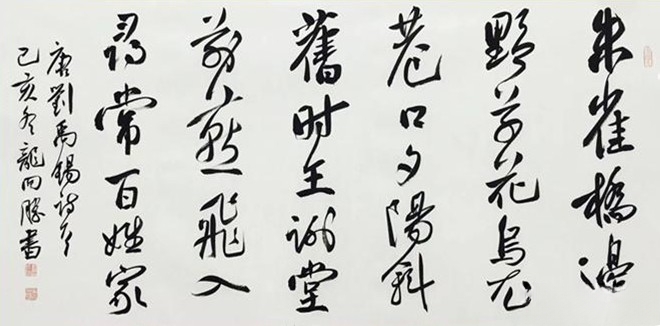 朱雀橋邊
野草花烏衣
巷口夕陽斜
舊时王謝堂
前燕飛入
尋常百姓家
唐劉禹錫诗
己亥冬龍書